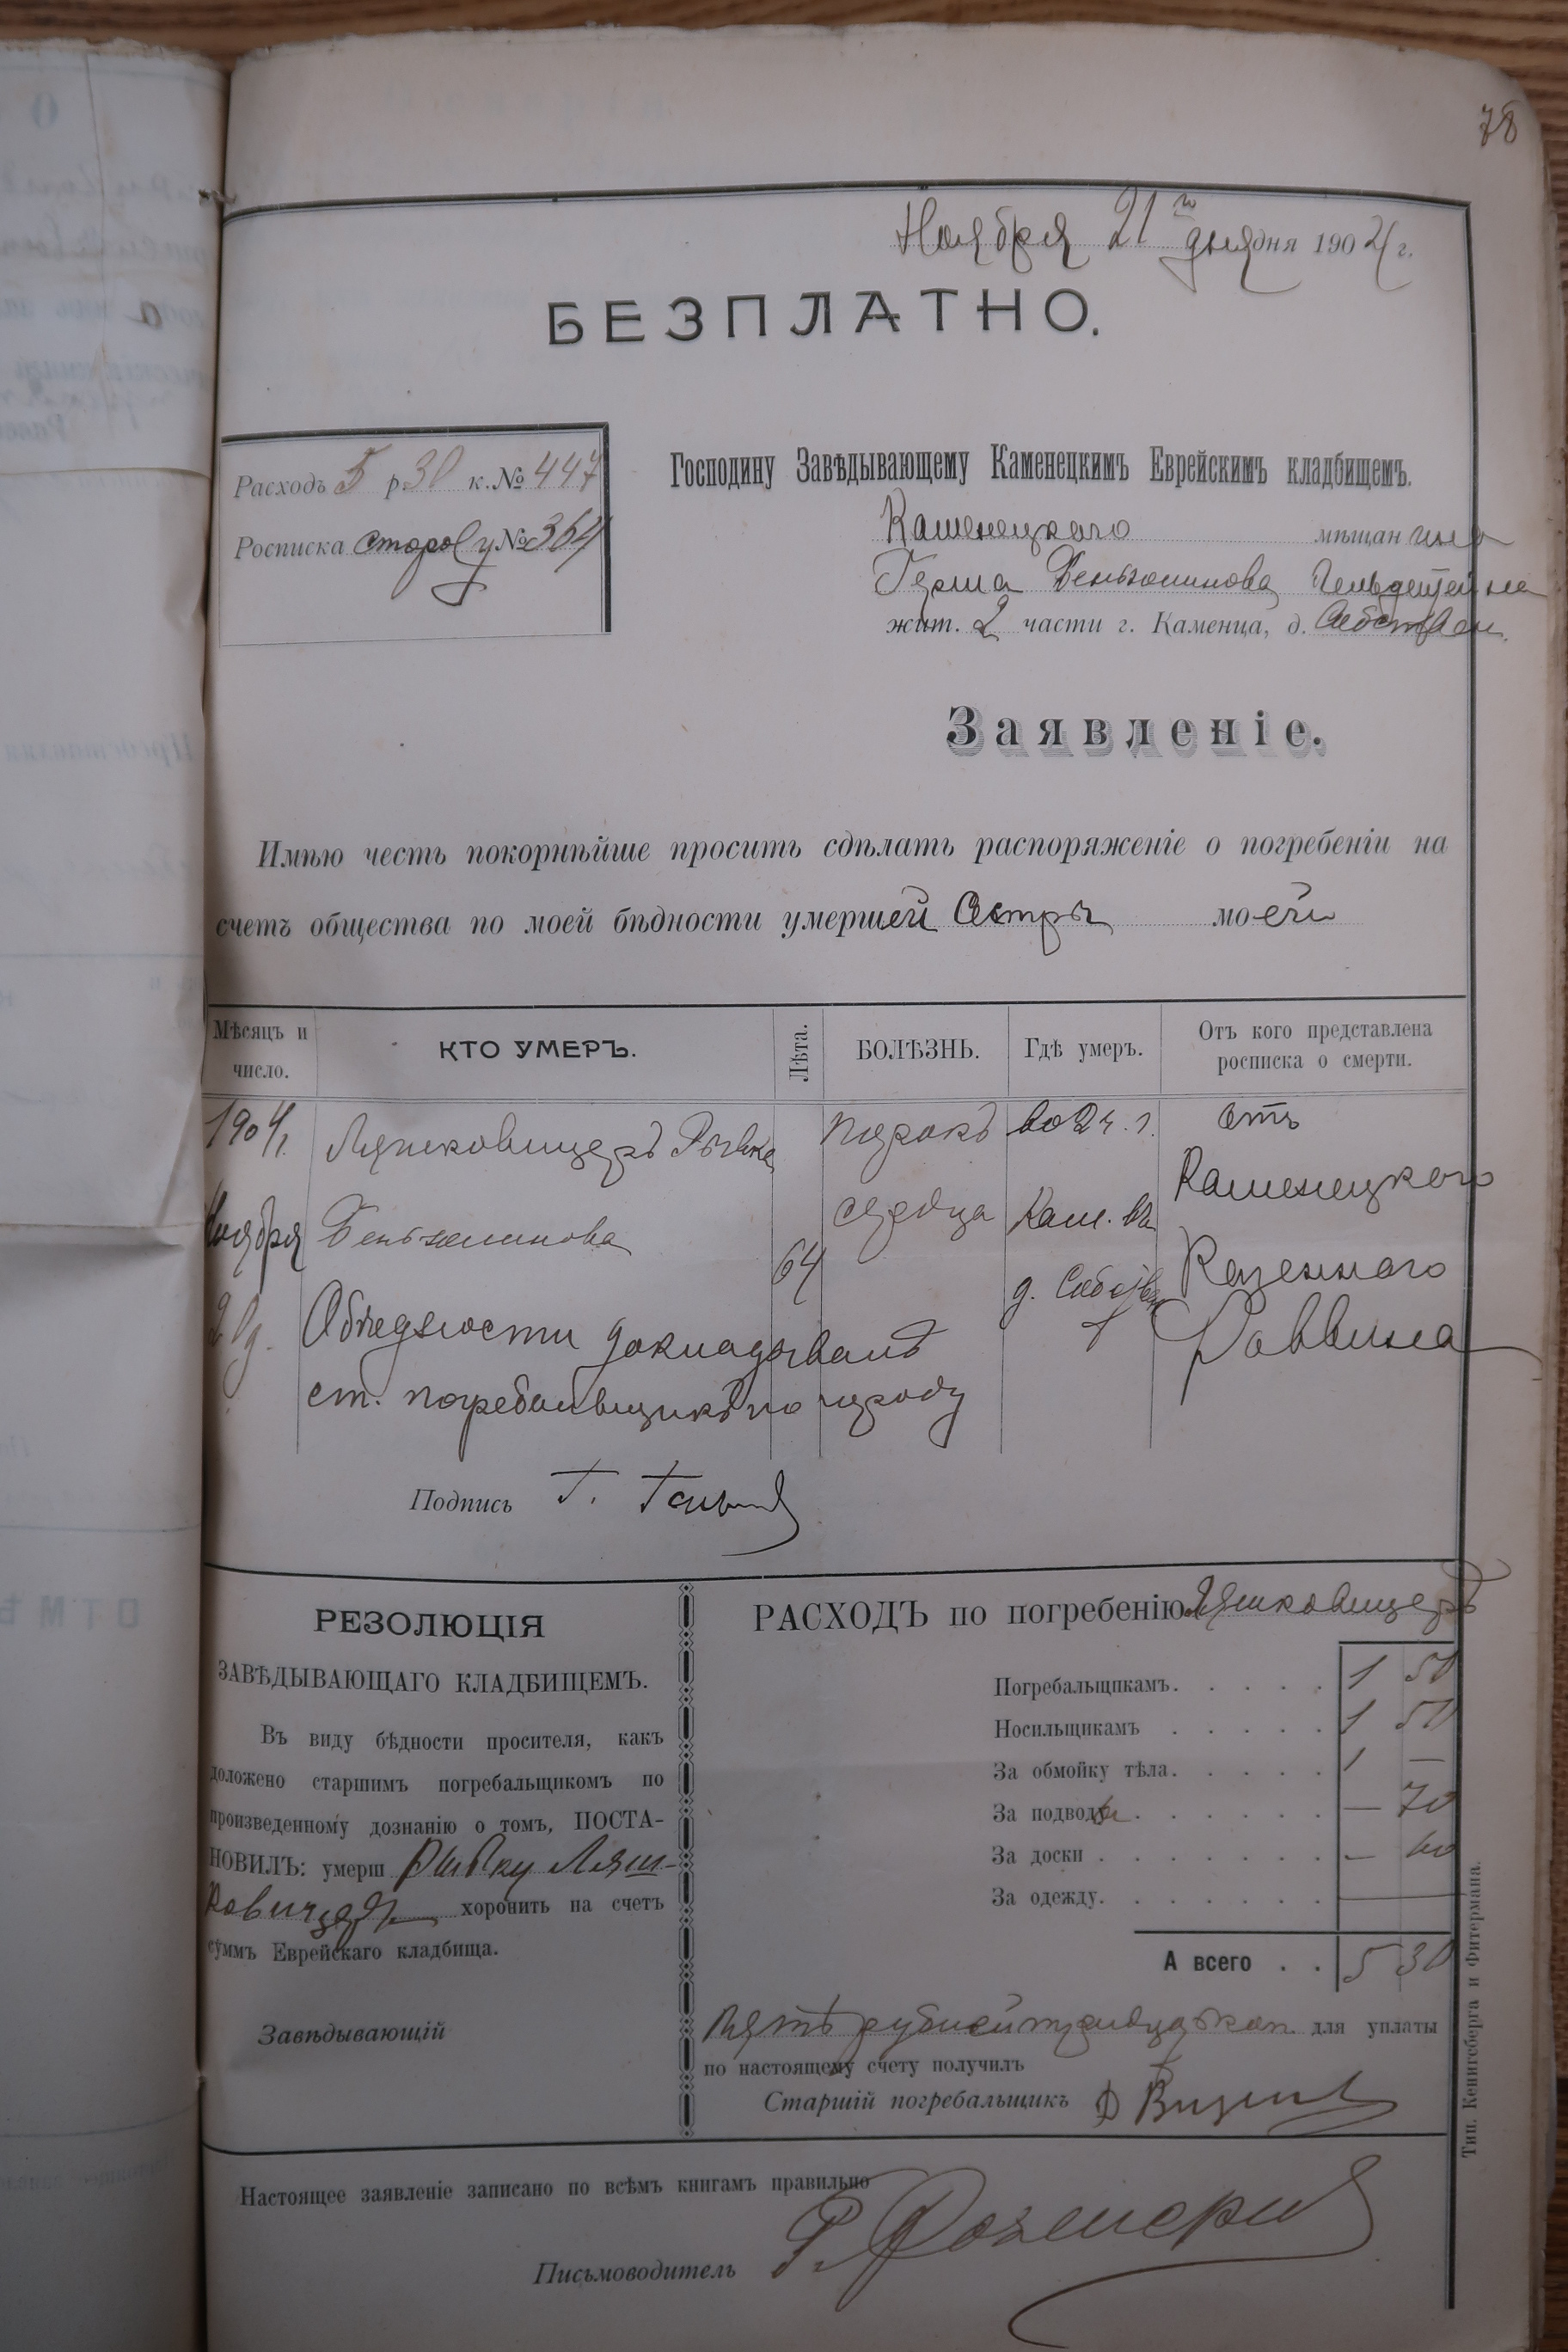 78
Ноября 21 го дня дня 1904 г.
БЕЗПЛАТНО.
Расходъ 5 р 30 к. № 447
Росписка сторожу № 364
Господину Завѣдывающему Каменецкимъ Еврейскимъ кладбищемъ.
Каменецкого мѣщанина
Герша Беньзионинова
жит. 2 части г. Каменца, д.
Заявленіе.
Имѣю честь покорнѣйше просить сдѣлать распоряженіе о погребеніи на
счетъ общества по моей бѣдности умершей Сестры моей
Мѣсяцъ и число.
КТО УМЕРЪ.
Лѣта.
БОЛѢЗНЬ.
Гдѣ умеръ.
Отъ кого представлена росписка о смерти.
1904 г. Ляшковицеръ Рывка порокъ во 2 ч. г. отъ
Каменецкого
Ноября сердца Кам. въ
64 Казенного
20 д. д. Раввина
О бѣдности докладывалъ
ст. погребальщикъ по приходу
Подпись Г.
РЕЗОЛЮЦІЯ
ЗАВѢДЫВАЮЩАГО КЛАДБИЩЕМЪ.
Въ виду бѣдности просителя, какъ
доложено старшимъ погребальщикомъ по
произведенному дознанію о томъ, ПОСТА-
НОВИЛЪ: умерш Рывку Ляш-
ковицеръ хоронить на счетъ
суммъ Еврейскаго кладбища.
Завѣдывающій
РАСХОДЪ по погребенію Ляшковицеръ
Погребальщикамъ. 1 50
Носильщикамъ 1 50
За обмойку тѣла. 1 —
За подводы — 70
За доски — 60
За одежду.
А всего . . 5 30
Пять рублей тридцать коп. для уплаты
по настоящему счету получилъ
Старшій погребальщикъ
Настоящее заявленіе записано по всѣмъ книгамъ правильно
Письмоводитель
Тип. Кенигсберга и Фитермана.